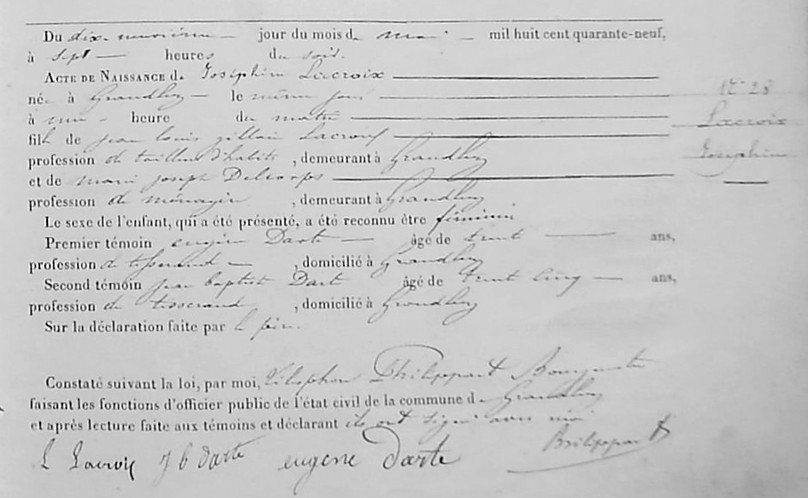 Du dix-neuvième jour du mois de mai mil huit cent quarante-neuf,
à sept heures du soir.
ACTE DE NAISSANCE de Joséphine Lacroix
née à Grandleez le même jour
à une heure du matin
fille de jean louis gillain Lacroix
profession de tailleur d'habits, demeurant à Grandleez
et de marie joseph Delcorps
profession de ménagère, demeurant à Grandleez
Le sexe de l'enfant, qui a été présenté, a été reconnu être féminin
Premier témoin eugène Darte âgé de trente ans,
profession de tisserand, domicilié à Grandleez
Second témoin jean baptiste Darte âgé de trente cinq ans,
profession de tisserand, domicilié à Grandleez
Sur la déclaration faite par le père.
N° 28
Lacroix
Joséphine
Constaté suivant la loi, par moi, Philippart Bourgmestre
faisant les fonctions d'officier public de l'état civil de la commune de Grandleez
et après lecture faite aux témoins et déclarant ils ont signé avec moi
L Lacroix J b darte eugene darte Philippart